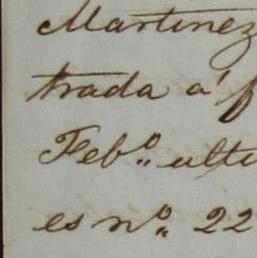 Martinez
trada á f
Feb.º ulti
es nº. 22